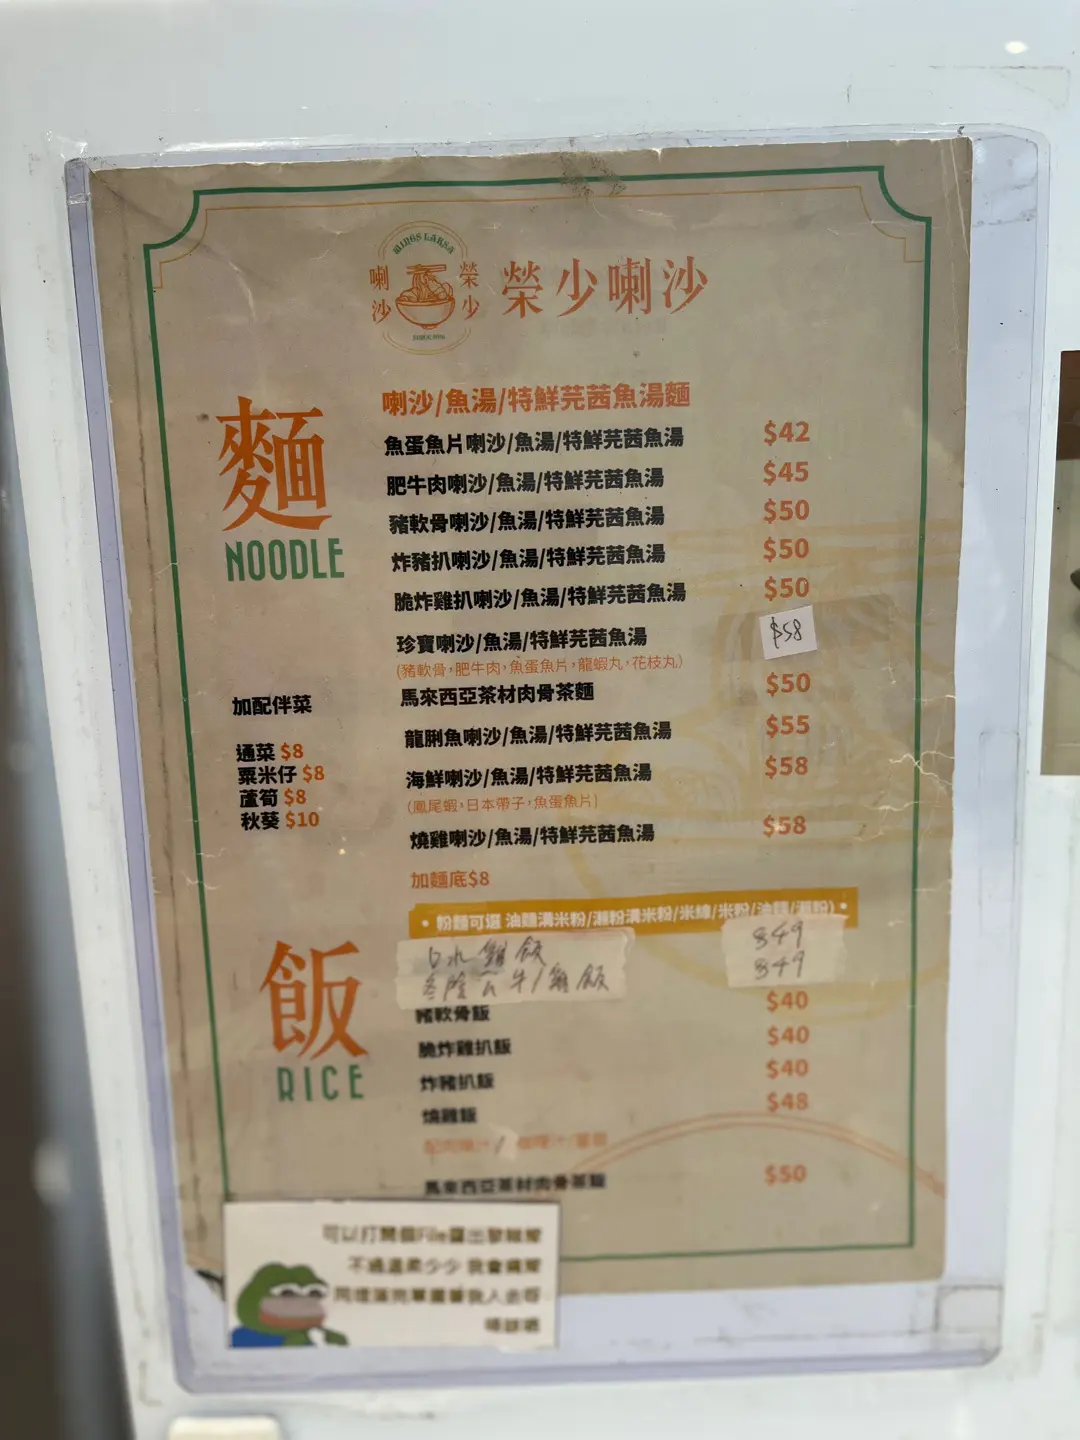 MINGS LAKSA
喇沙
榮少
榮少喇沙
麵
NOODLE
喇沙/魚湯/特鮮芫茜魚湯麵
魚蛋魚片喇沙/魚湯/特鮮芫茜魚湯 $42
肥牛肉喇沙/魚湯/特鮮芫茜魚湯 $45
豬軟骨喇沙/魚湯/特鮮芫茜魚湯 $50
炸豬扒喇沙/魚湯/特鮮芫茜魚湯 $50
脆炸雞扒喇沙/魚湯/特鮮芫茜魚湯 $50
珍寶喇沙/魚湯/特鮮芫茜魚湯 $58
(豬軟骨,肥牛肉,魚蛋魚片,龍蝦丸,花枝丸)
馬來西亞茶材肉骨茶麵 $50
龍脷魚喇沙/魚湯/特鮮芫茜魚湯 $55
海鮮喇沙/魚湯/特鮮芫茜魚湯 $58
(鳳尾蝦,日本帶子,魚蛋魚片)
燒雞喇沙/魚湯/特鮮芫茜魚湯 $58
加麵底$8
加配伴菜
通菜 $8
粟米仔 $8
蘆筍 $8
秋葵 $10
• 粉麵可選 油麵溝米粉/瀨粉溝米粉/米線/米粉/油麵/瀨粉) •
飯
RICE
白水雞飯 $49
冬陰公牛/雞飯 $49
豬軟骨飯 $40
脆炸雞扒飯 $40
炸豬扒飯 $40
燒雞飯 $48
馬來西亞茶材肉骨茶飯 $50
可以打開個File露出發睇㗎
不過溫柔少少 我會痛㗎